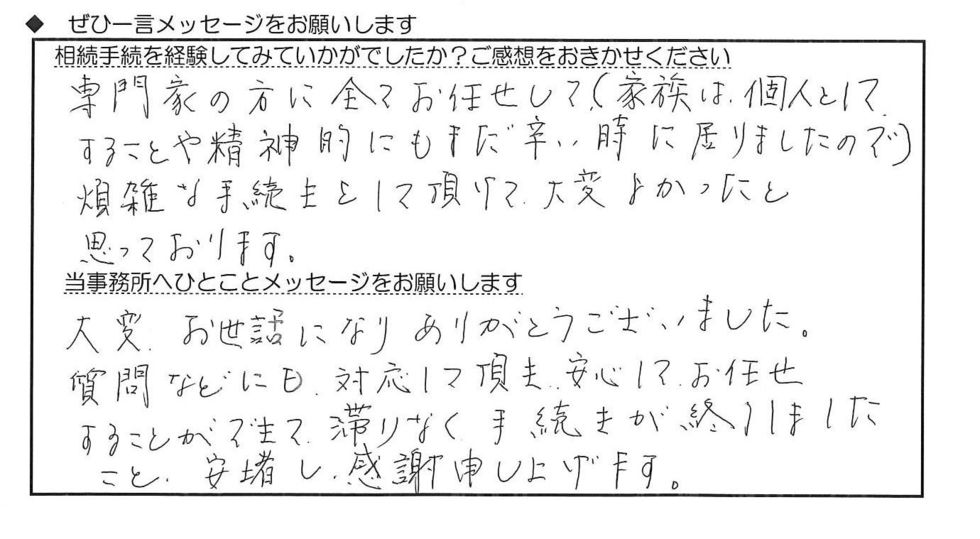 ◆ ぜひ一言メッセージをお願いします
相続手続を経験してみていかがでしたか？ご感想をおきかせください
専門家の方に全てお任せして、（家族は、個人として
することや精神的にもまだ辛い時に居りましたので）
煩雑な手続きをして頂けて、大変よかったと
思っております。
当事務所へひとことメッセージをお願いします
大変、お世話になりありがとうございました。
質問などにも、対応して頂き、安心して、お任せ
することができて、滞りなく、手続きが終了しました
こと、安堵し、感謝申し上げます。